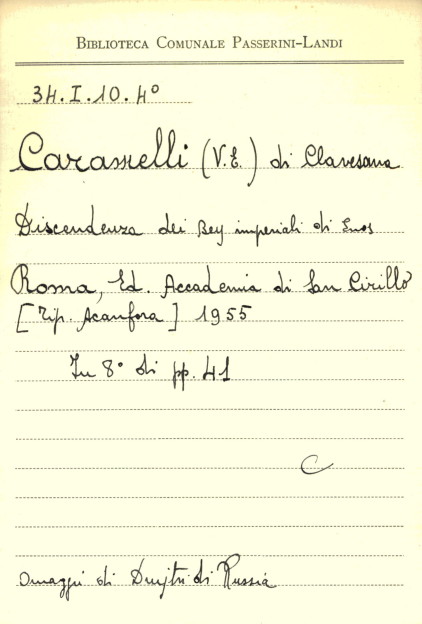 BIBLIOTECA COMUNALE PASSERINI-LANDI
34.I.10.4°
Caramelli (V.E.) di Clavesana
Discendenza dei Bey imperiali di Enos
Roma, Ed. Accademia di San Cirillo
[Tip. Acanfora] 1955
In 8° di pp. 41
C
Omaggi di di Russia